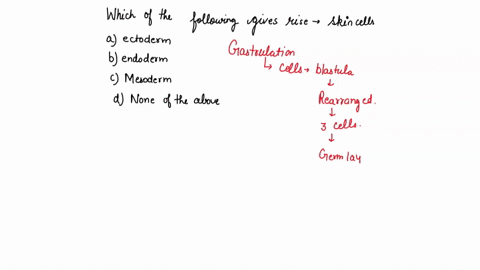 Which of the following gives rise → skin cells
a) ectoderm
b) endoderm
c) Mesoderm
d) None of the above
Gastrulation
↳ cells → blastula
↓
Rearranged.
↓
3 cells.
↓
Germ lay